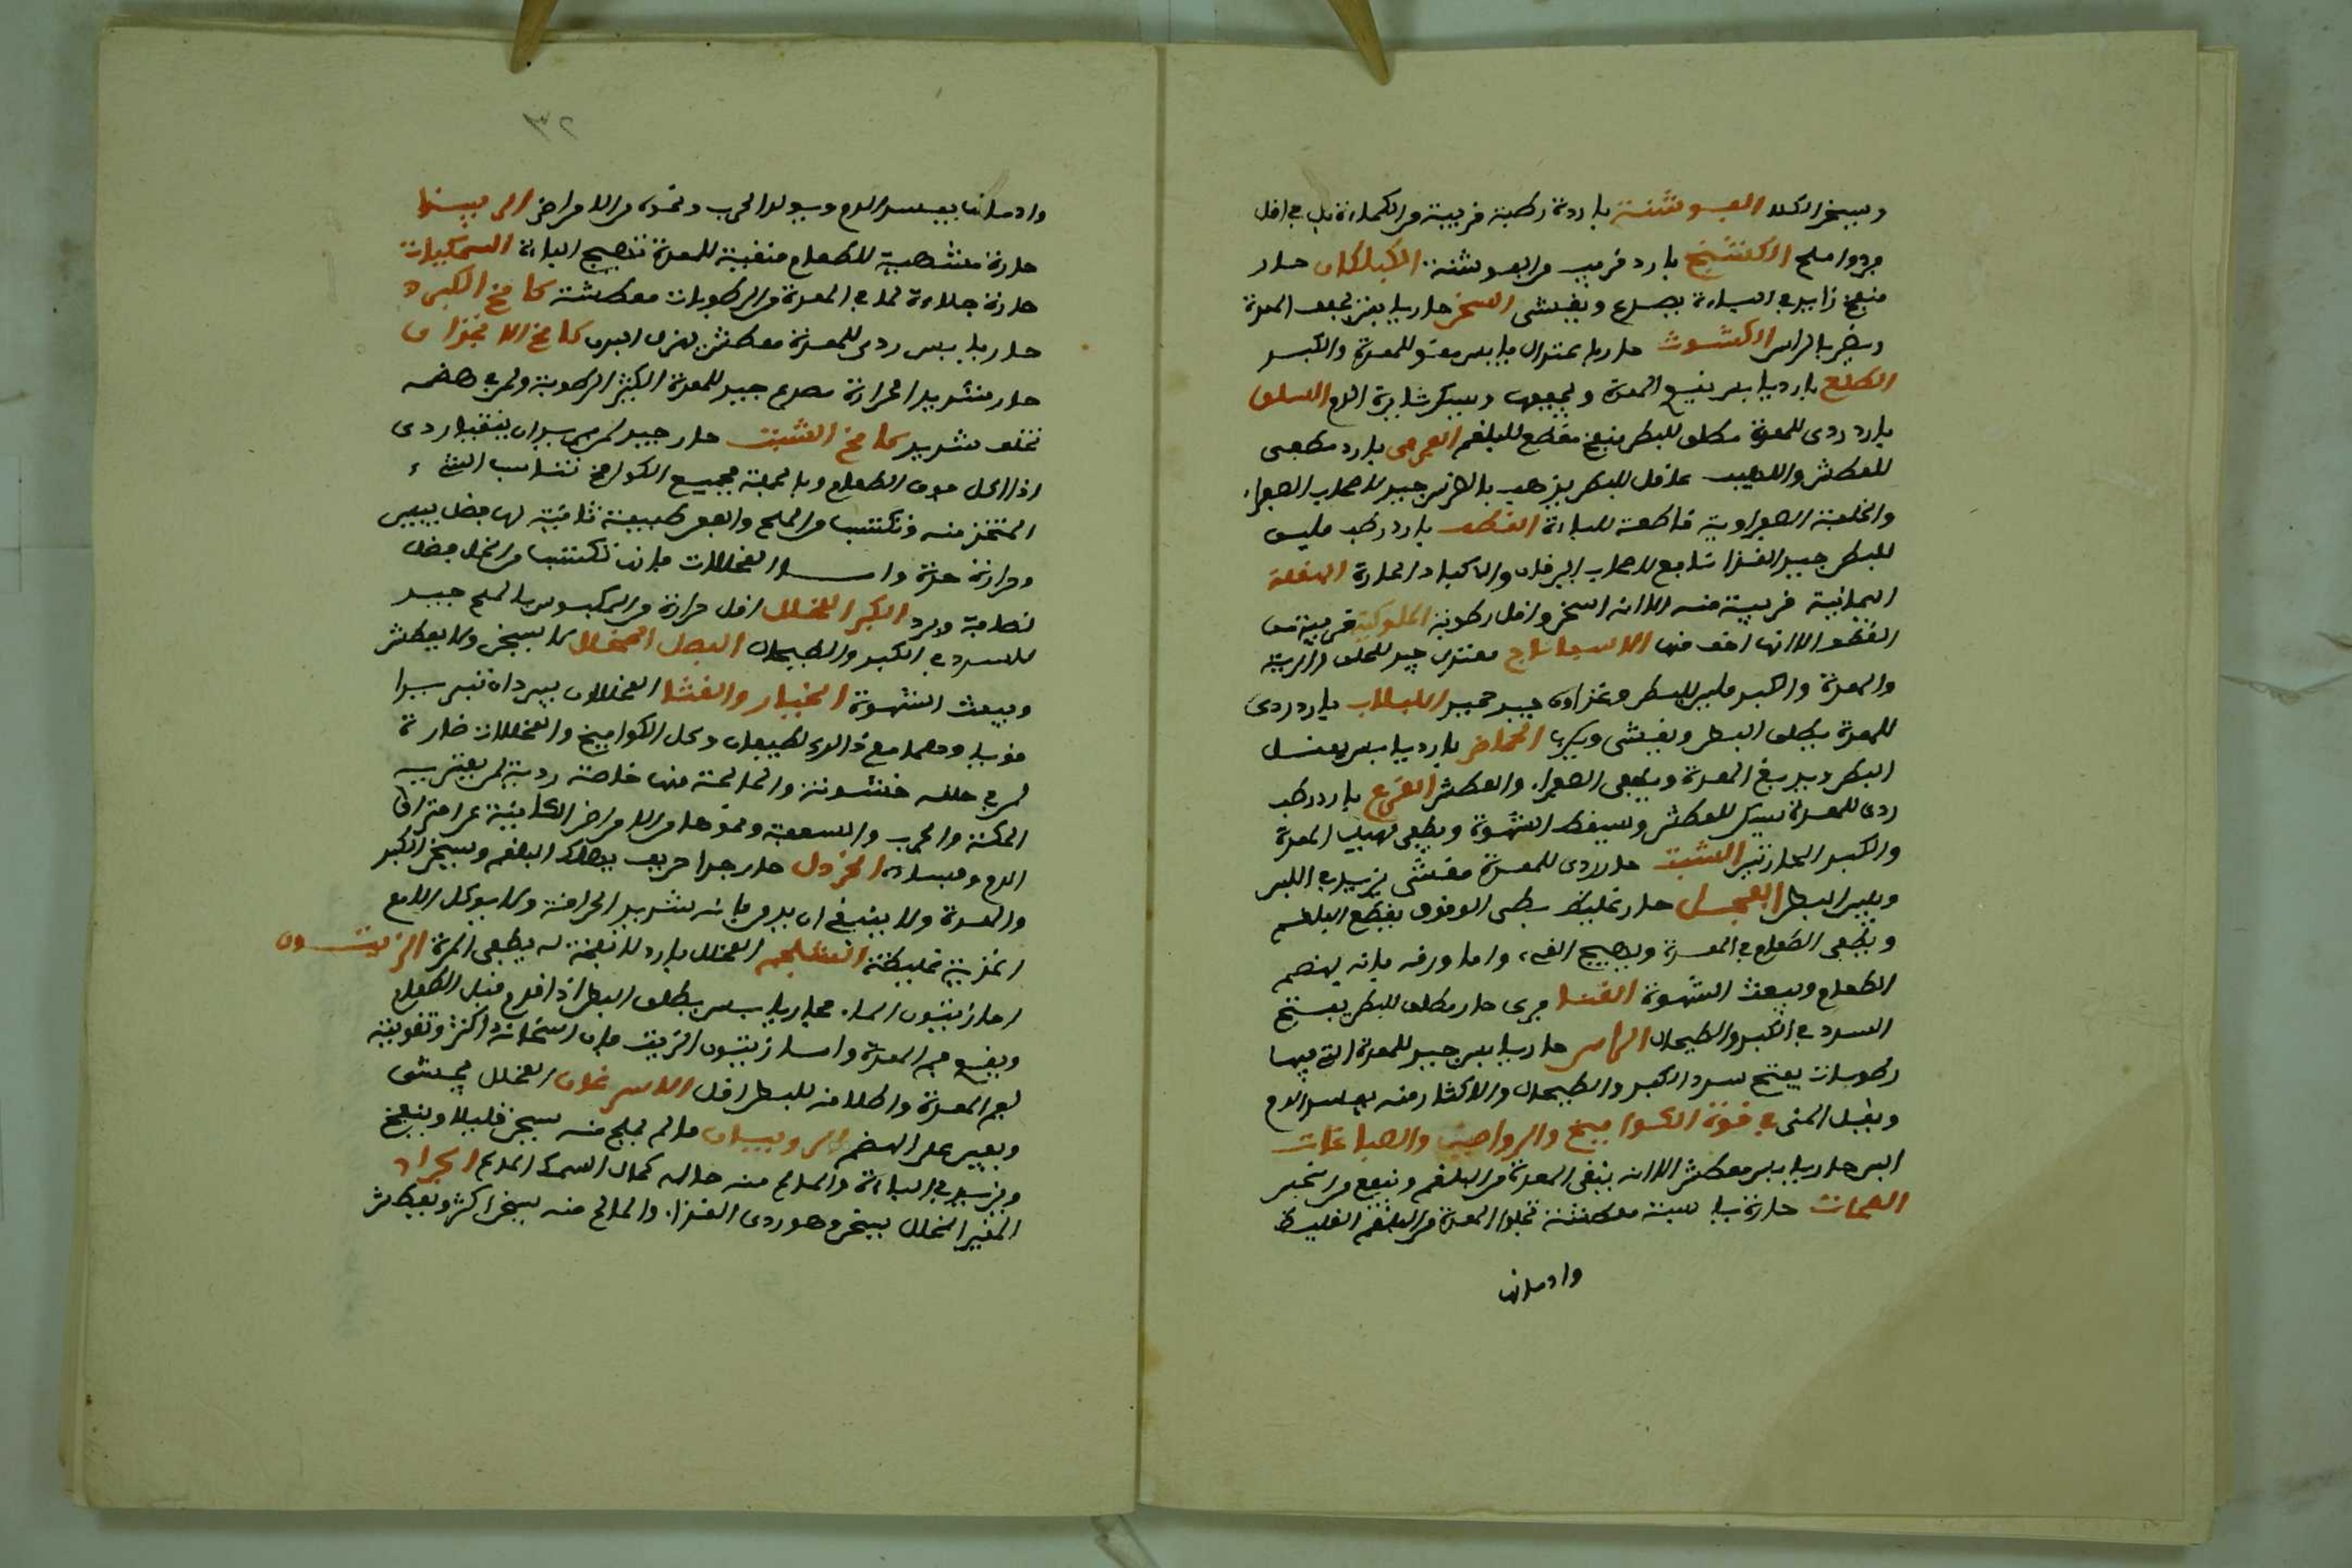 ويسخن الكلا الفوشنة باردة رطبة قريبة من الكماءة بل هي اقل
بردوا ملح الكشنج بارد قريب من الفوشنة الكبلكان حار
منفخ زايد في الباءة يصدع ويغشى السخر حار يابس يجفف المعدة
ويضر بالراس الكشوث حار باعتدال يابس مقو للمعدة والكبد
الطلع بارد يابس يدبغ المعدة ويجففها ويسكن ثايرة الدم السلق
بارد ردى للمعدة مطلق للبطن منفخ مقطع للبلغم الفرفج بارد مطفى
للعطش واللهيب عاقل للبطن يذهب بالضرس جيد لاصحاب الصفراء
والخلفة الصفراوية قاطعة للباءة القطف بارد رطب مليين
للبطن جيد الغذا نافع لاصحاب اليرقان والاكباد الحارة البقلة
اليمانية قريبة منه الا انه اسخن واقل رطوبة الملوكية قريبة من
القطف الا انها اخف منها الاسفاناخ معتدل جيد للحلق والرية
والمعدة والكبد ملين للبطن وغذاوه جيد حميد اللبلاب بارد ردى
للمعدة يطلق البطن ويغشى ويكرب الحماض بارد يابس يعقل
البطن ويدبغ المعدة ويطفى الصفراء والعطش القرع بارد رطب
ردى للمعدة يسكن للعطش ويسقط الشهوة ويطفى لهيب المعدة
والكبد الحارتين الشبت حار ردى للمعدة مغشى يزيد في اللبن
ويلين البطن الفجل حار غليظ بطى الوقوف يقطع البلغم
ويطفى الطعام في المعدة ويهيج القى، واما ورقه فانه يهضم
الطعام ويبعث الشهوة القنا برى حار مطلق للبطن يفتح
السدد في الكبد والطحال الراسن حار يابس جيد للمعدة التي فيها
رطوبات يفتح سدد الكبد والطحال والاكثار منه يفسد الدم
ويقلل المنى في قوة الكواميخ والرواصير والصباغات
المرى حار يابس معطش الا انه ينقى المعدة من البلغم وينفع من التخمر
الصحنات حارة يابسة معطشة تجلوا المعدة من البلغم الغليظ
وادمانها
٣٢
وادمانها يفسد الدم ويولد الجرب ونحوه من الامراض الربيثا
حارة مشهية للطعام منقية للمعدة تهيج الباءة السمكيات
حارة جلاءة لما في المعدة من الرطوبات معطشة كامخ الكبر
حار يابس ردى للمعدة معطش يهزل البدن كامخ الانجذان
حار شديد الحرارة يصدع جيد للمعدة الكثيرة الرطوبة ولمن في هضمه
تخلف شديد كامخ الشبت حار جيد لمن يريد ان يتقيا ردى
اذا اكل فوق الطعام وبالجملة فجميع الكوامخ تناسب الشىء
المتخذ منه وتكتسب من الملح والعفن طبيعة ثانية لها فضل يبس
وحرارة حدة واما المخللات فانها تكتسب من الخل فضل
لطافة وبرد الكبر المخلل اقل حرارة من المكبوس بالملح جيد
للسدد في الكبد والطحال البصل المخلل لا يسخن ولا يعطش
ويبعث الشهوة الخيار والقثا المخللان يبردان تبريدا
قويا وهما مع ذلك لطيفان وكل الكواميخ والمخللات ضارة
لمن في حلقه خشونة والمالحة منها خاصة ردية لمن يعتريه
الحكة والجرب والسعفة ونحوها من الامراض الكائنة عن احتراق
الدم وفساده الخردل حار جدا حريف يهلك البلغم ويسخن الكبد
والمعدة ولا ينبغي ان يدمن فانه شديد الحرافة ولا يوكل الا مع
اغذية غليظة الشلجم المخلل بارد لا نفخة له يطفى المرة الزيتون
اما زيتون الماء فحار يابس يطلق البطن اذا قدم قبل الطعام
ويقوى فم المعدة واما زيتون الزيت فان اسخانه اكثر وتقويته
لفم المعدة واطلاقه للبطن اقل الاسرغان المخلل يجشى
ويعين على الهضم الروبيان ما لم يملح منه يسخن قليلا وينفخ
ويزيد في الباءة والمالح منه حاله كحال السمك المالح الجراد
الغير المخلل يسخن وهو ردى الغذاء والمالح منه يسخن اكثر ويعطش